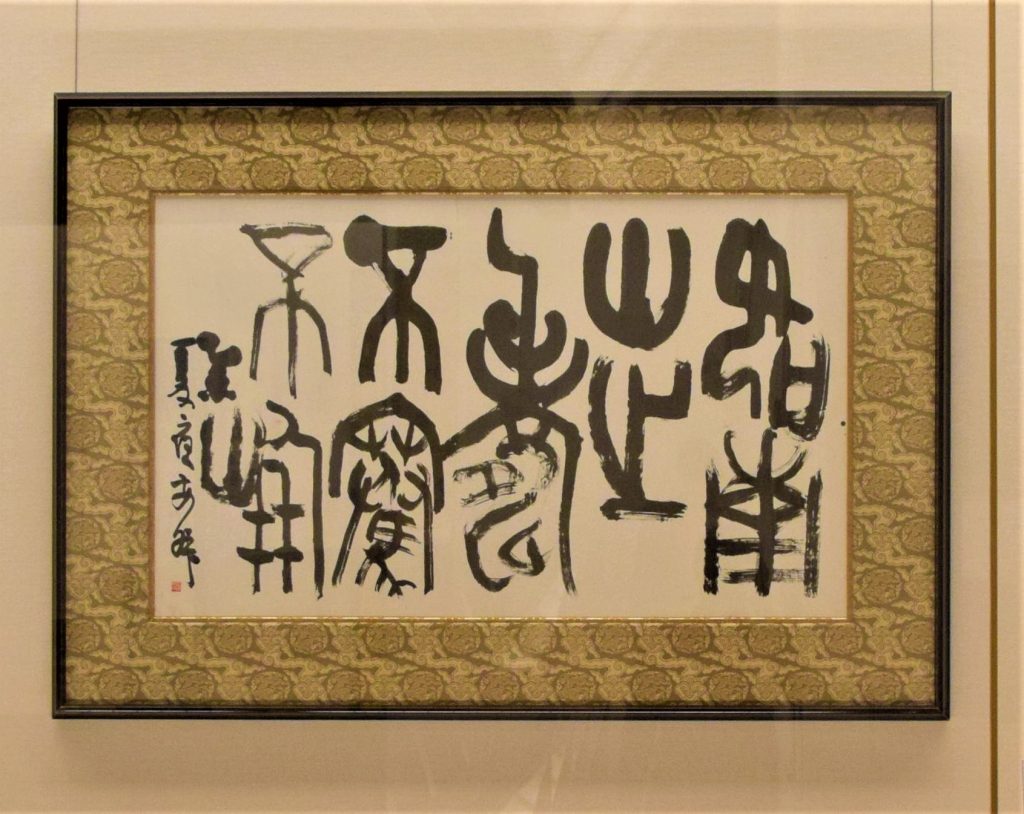 如南
山之
壽
不騫
不崩